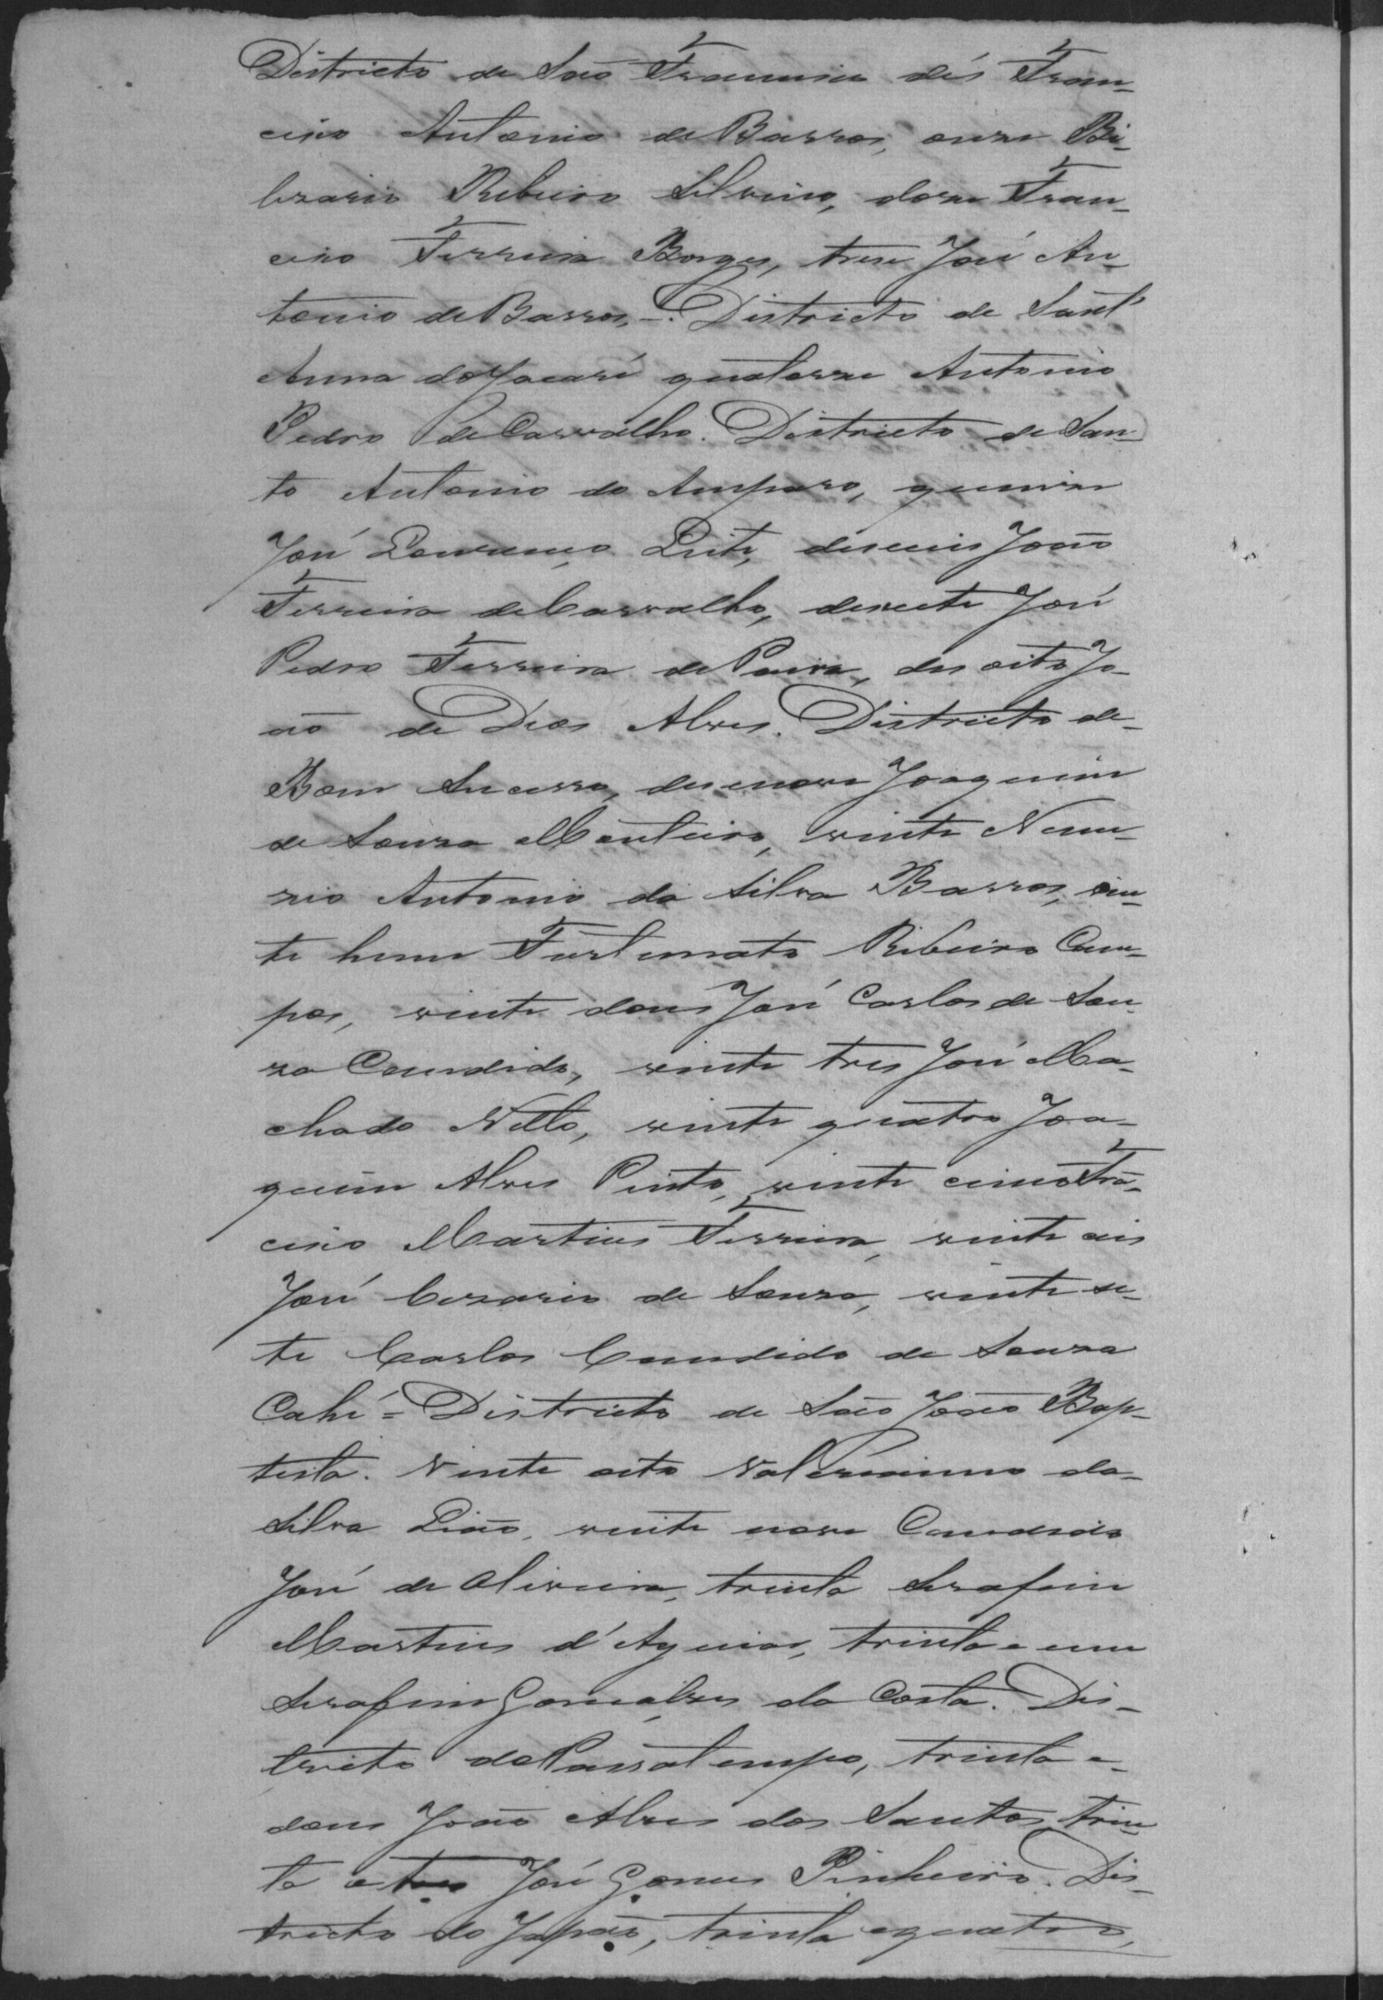 Districto de São Francisco dés Fran-
cisco Antonio de Barros, onze Bi-
lizario Ribeiro Silvino, doze Fran-
cisco Ferreira Borges, treze José An-
tonio de Barros, -. Districto de Sant'
Anna do Jacaré quatorze Antonio
Pedro de Carvalho. Districto de San-
to Antonio do Amparo, quinze
José Lourenço Leite, deseseis João
Ferreira de Carvalho, desesete José
Pedro Ferreira de Paiva, des oito Jo-
ão de Deos Alves. Districto de
Bom Sucesso, desenove Joaquim
de Souza Monteiro, vinte Nem-
zio Antonio da Silva Barros, vin-
te hum Furtunato Ribeiro Cam-
pos, vinte dous José Carlos de Sou-
za Candido, vinte tres José Ma-
chado Netto, vinte quatro Joa-
quim Alves Pinto, vinte cinco Fran-
cisco Martins Ferreira, vinte seis
José Cezario de Souza, vinte se-
te Carlos Candido de Souza
Cahé = Districto de São João Bap-
tista. Vinte oito Valeriano da
Silva Leão, vinte nove Candido
José de Oliveira, trinta Serafim
Martins d'Aguiar, trinta e um
Serafim Gonçalves da Costa. Dis-
tricto do Passatempo, trinta e
dous João Alves dos Santos, trin-
ta e tres José Gomes Pinheiro. Dis-
tricto do Japão, trinta e quatro,